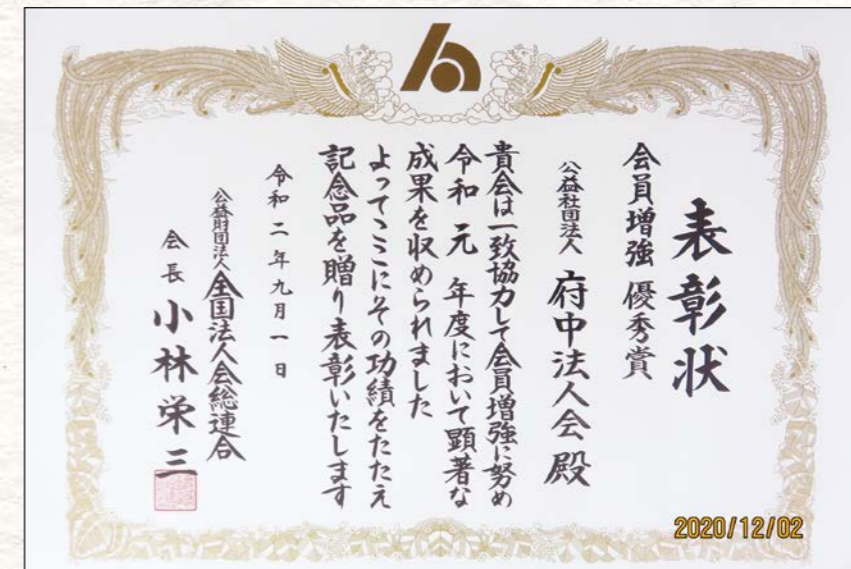 表彰状
会員増強 優秀賞
公益社団法人 府中法人会 殿
貴会は一致協力して会員増強に努め
令和 元 年度において顕著な
成果を収められました
よってここにその功績をたたえ
記念品を贈り表彰いたします
令和二年九月一日
公益財団法人 全国法人会総連合
会長 小林栄三
2020/12/02